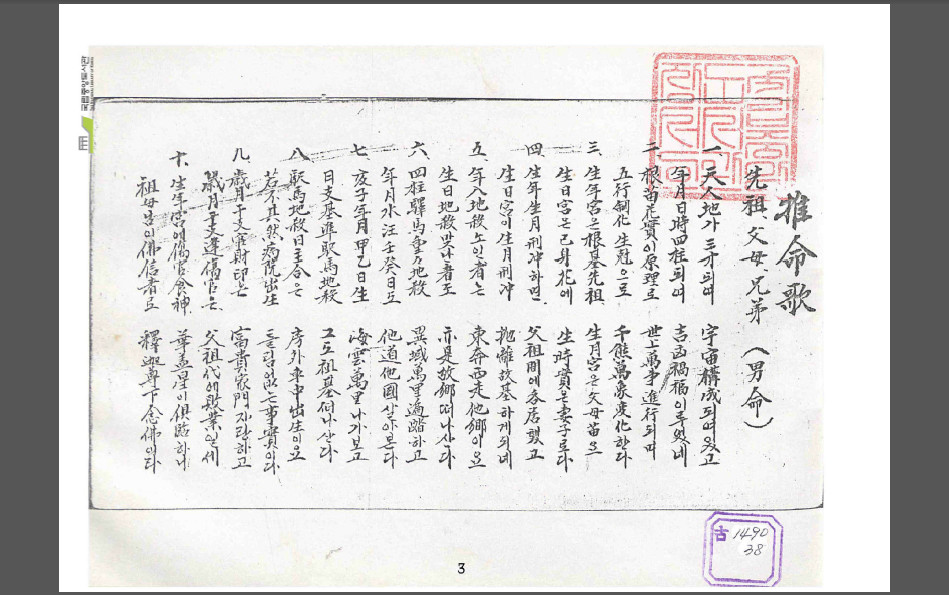 推命歌
先祖、父母、兄弟 (男命)
一、天人地가 三才되여 宇宙構成되여있고
年月日時四柱되여 吉凶禍福이루웠네
二、根苗花實이原理로 世上萬事進行되며
五行制化 生剋으로 千態萬象変化한다
三、生年宮은根基先祖 生月宮은父母苗요
生日宮은己身花에 生時實은妻子로다
四、生年生月刑冲하면 父祖間에各居했고
生日宮이生月刑冲 抛離故基하게되네
五、年入地殺놓인者는 東奔西走他鄉이요
生日地殺 者도 亦是故鄉떠나산다
六、四柱驛馬重々地殺 異域萬里遍踏하고
年月水汪壬癸日도 他道他國살아본다
七、亥子年月甲乙日生 海雲萬里나가보고
日支基準馹馬地殺 그도祖基떠나산다
八、馹馬地殺日主合은 房外車中出生이요
若不其然病院出生 틀림없는事實이다
九、歲月干支官財印은 富貴家門자랑하고
歲月干支逢傷官은 父祖代에敗業일세
十、生年宮에傷官食神 華盖星이俱臨하니
祖母님이佛信者로 釋迦尊下念佛이다
古 1490
38
3